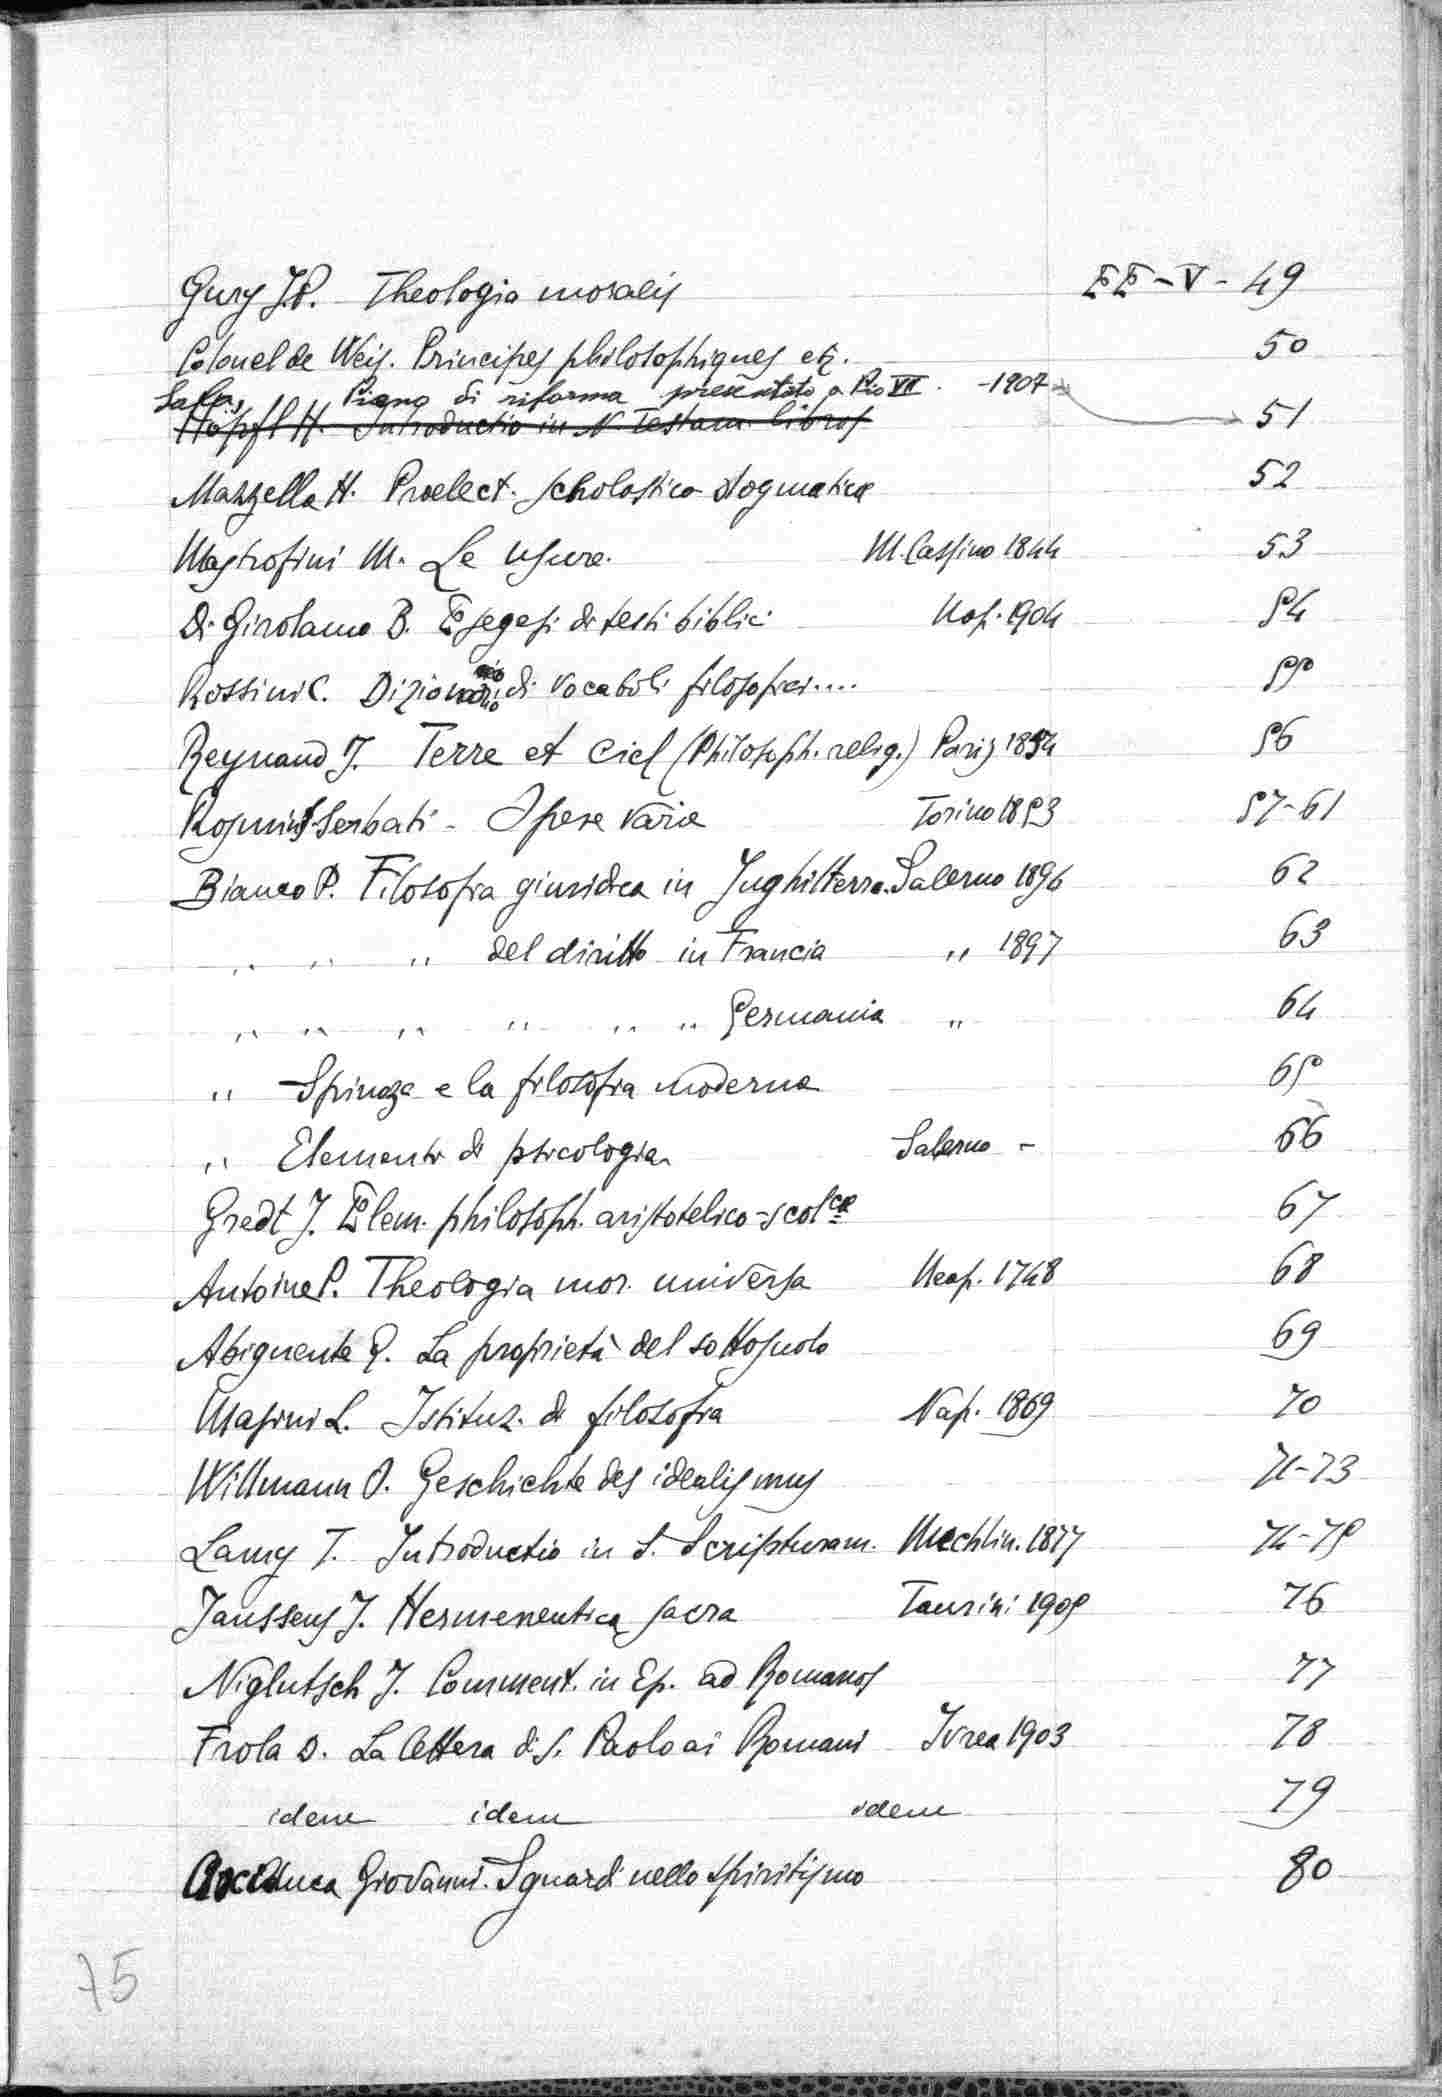 Gury J.P. Theologia moralis EE-V-49
Colonel de Weis. Principes philosophiques etz. 50
Piano di riforma presentato a Pio VII. -1907
Höpfl H. Introductio in N. Testam. libros 51
Mazzella H. Praelect. scholastico dogmaticae 52
Mastrofini M. Le usure. M. Cassino 1844 53
Di Girolamo B. Esegesi di testi biblici Nap. 1904 54
Rossini C. Dizionario di vocaboli filosofici.... 55
Reynaud J. Terre et Ciel (Philosoph. relig.) Paris 1854 56
Rosmini Serbati - Opere varie Torino 1853 57-61
Bianco P. Filosofia giuridica in Inghilterra. Salerno 1896 62
,, ,, ,, del diritto in Francia ,, 1897 63
,, ,, ,, ,, ,, ,, Germania ,, 64
,, Spinoza e la filosofia moderna 65
,, Elementi di psicologia Salerno - 66
Gredt J. Elem. philosoph. aristotelico-scolcae 67
Antoine P. Theologia mor. universa Neap. 1748 68
Abignente G. La proprietà del sottosuolo 69
Masini L. Istituz. di filosofia Nap. 1869 70
Willmann O. Geschichte des idealismus 71-73
Lamy T. Introductio in S. Scripturam. Mechlin. 1877 74-75
Janssens J. Hermeneutica sacra Taurini 1905 76
Niglutsch J. Comment. in Ep. ad Romanos 77
Frola S. La lettera di S. Paolo ai Romani Ivrea 1903 78
idem idem idem 79
Arciduca Giovanni. Sguardi nello spiritismo 80
75